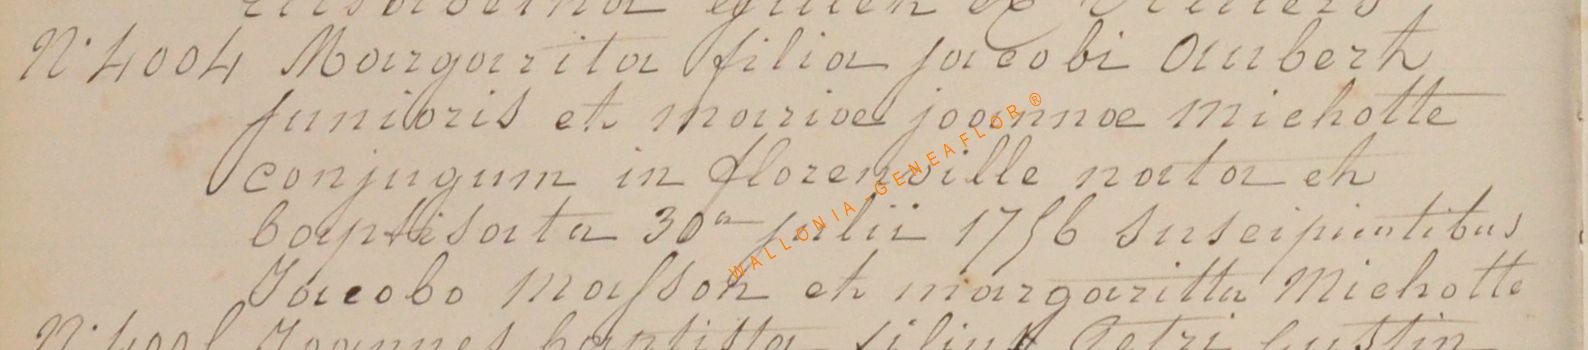 N° 4004 Margarita filia jacobi Aubert
junioris et mariae joannae Michotte
conjugum in florenville nata et
baptisata 30a julii 1756 suscipientibus
Jacobo Masson et margaritta Michotte
N° 4005 Joannes baptista filius Petri Gustin
WALLONIA - GENEAFLOR ®